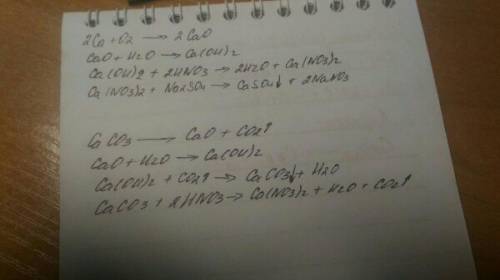 2Ca + O2 → 2CaO
CaO + H2O → Ca(OH)2
Ca(OH)2 + 2HNO3 → 2H2O + Ca(NO3)2
Ca(NO3)2 + Na2SO4 → CaSO4↓ + 2NaNO3
CaCO3 → CaO + CO2↑
CaO + H2O → Ca(OH)2
Ca(OH)2 + CO2↑ → CaCO3↓ + H2O
CaCO3 + 2HNO3 → Ca(NO3)2 + H2O + CO2↑